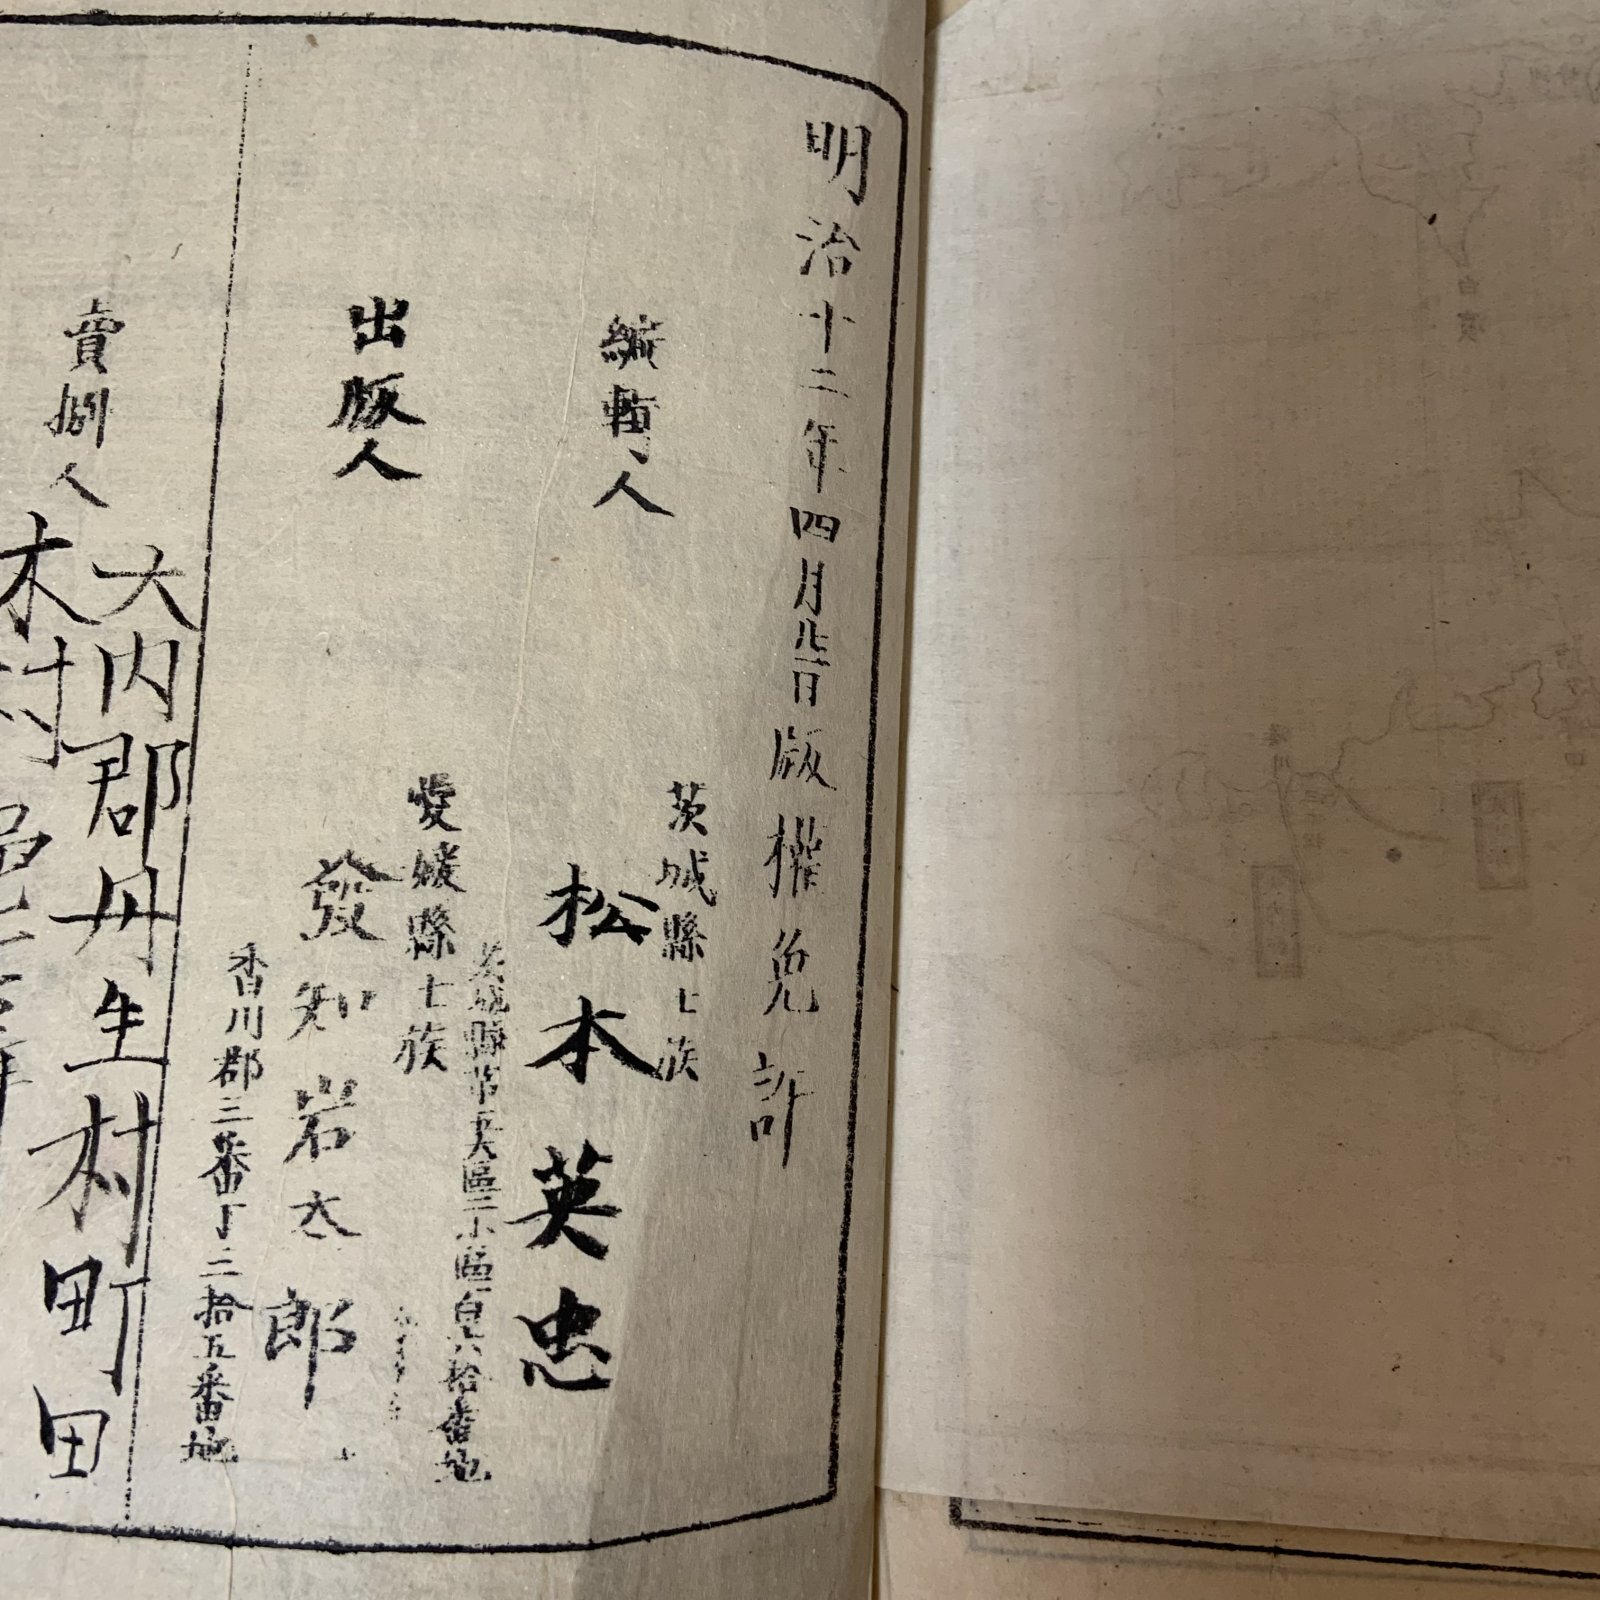 明治十二年四月廿二日版權免許
編輯人
茨城縣士族
松本英忠
茨城縣第五大區二小區百六拾番地
出版人
愛媛縣士族
發知岩太郎
香川郡三番丁三拾五番地
賣捌人
大内郡丹生村町田
木村
白濱